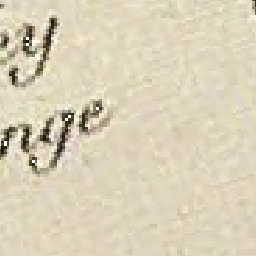 ey
nge